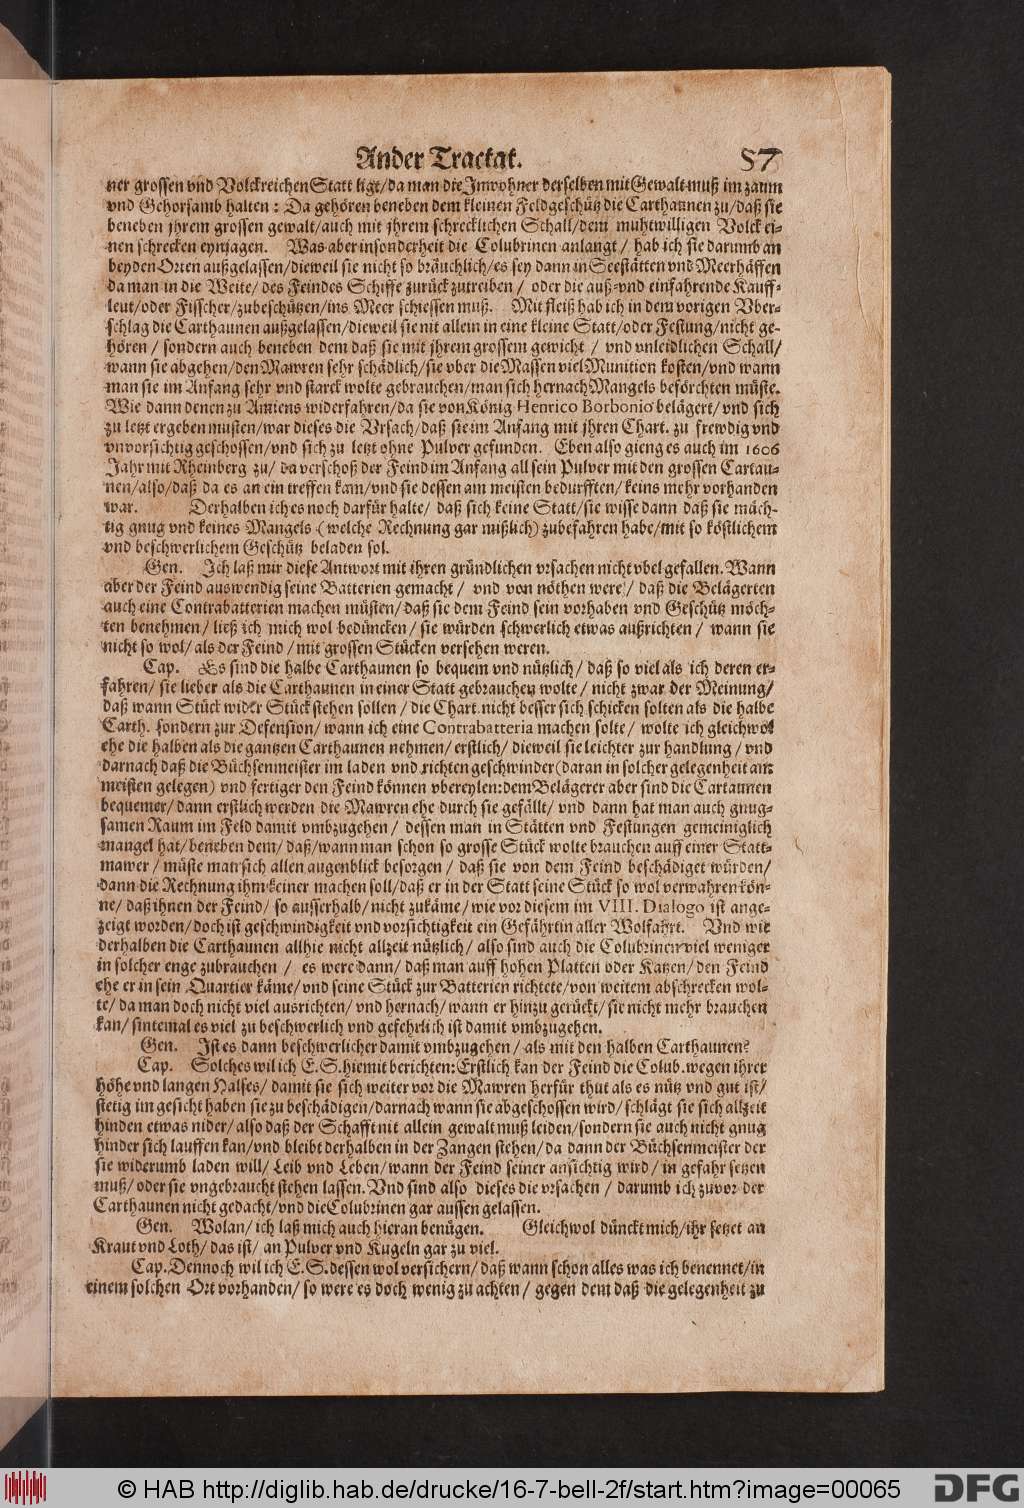 Ander Tractat. 57
ner grossen vnd Volckreichen Statt ligt/ da man die Jnwohner derselben mit Gewalt muß im zaum
vnd Gehorsamb halten: Da gehören beneben dem kleinen Feldgeschütz die Carthaunen zu/ daß sie
beneben jhrem grossen gewalt/ auch mit jhrem schrecklichen Schall/ dem muhtwilligen Volck ei-
nen schrecken eynjagen. Was aber insonderheit die Colubrinen anlangt/ hab ich sie darumb an
beyden Orten außgelassen/ dieweil sie nicht so bräuchlich/ es sey dann in Seestätten vnd Meerhäffen
da man in die Weite/ des Feindes Schiffe zurück zutreiben/ oder die auß- vnd einfahrende Kauff-
leut/ oder Fisscher/ zubeschützen/ ins Meer schiessen muß. Mit fleiß hab ich in dem vorigen Vber-
schlag die Carthaunen außgelassen/ dieweil sie nit allein in eine kleine Statt/ oder Festung/ nicht ge-
hören/ sondern auch beneben dem daß sie mit jhrem grossem gewicht/ vnd vnleidlichen Schall/
wann sie abgehen/ den Mawren sehr schädlich/ sie vber die Massen viel Munition kosten/ vnd wann
man sie im Anfang sehr vnd starck wolte gebrauchen/ man sich hernach Mangels beförchten müste.
Wie dann denen zu Amiens widerfahren/ da sie von König Henrico Borbonio belägert/ vnd sich
zu letzt ergeben musten/ war dieses die Vrsach/ daß sie im Anfang mit jhren Chart. zu frewdig vnd
vnvorsichtig geschossen/ vnd sich zu letzt ohne Pulver gefunden. Eben also gieng es auch im 1606
Jahr mit Rheinberg zu/ da verschoß der Feind im Anfang all sein Pulver mit den grossen Cartau-
nen/ also/ daß da es an ein treffen kam/ vnd sie dessen am meisten bedurfften/ keins mehr vorhanden
war. Derhalben ich es noch darfür halte/ daß sich keine Statt/ sie wisse dann daß sie mäch-
tig gnug vnd keines Mangels (welche Rechnung gar mißlich) zubefahren habe/ mit so köstlichem
vnd beschwerlichem Geschütz beladen sol.
Gen. Ich laß mir diese Antwort mit ihren gründlichen vrsachen nicht vbel gefallen. Wann
aber der Feind auswendig seine Batterien gemacht/ vnd von nöthen were/ daß die Belägerten
auch eine Contrabatterien machen müsten/ daß sie dem Feind sein vorhaben vnd Geschütz möch-
ten benehmen/ ließ ich mich wol bedüncken/ sie würden schwerlich etwas außrichten/ wann sie
nicht so wol/ als der Feind/ mit grossen Stücken versehen weren.
Cap. Es sind die halbe Carthaunen so bequem vnd nützlich/ daß so viel als ich deren er-
fahren/ sie lieber als die Carthaunen in einer Statt gebrauchen wolte/ nicht zwar der Meinung/
daß wann Stück wider Stück stehen sollen/ die Chart. nicht besser sich schicken solten als die halbe
Carth. sondern zur Defension/ wann ich eine Contrabatteria machen solte/ wolte ich gleichwol
ehe die halben als die gantzen Carthaunen nehmen/ erstlich/ dieweil sie leichter zur handlung/ vnd
darnach daß die Büchsenmeister im laden vnd richten geschwinder (daran in solcher gelegenheit am
meisten gelegen) vnd fertiger den Feind können vbereylen: dem Belägerer aber sind die Cartaunen
bequemer/ dann erstlich werden die Mawren ehe durch sie gefällt/ vnd dann hat man auch gnug-
samen Raum im Feld damit vmbzugehen/ dessen man in Stätten vnd Festungen gemeiniglich
mangel hat/ beneben dem/ daß/ wann man schon so grosse Stück wolte brauchen auff einer Statt-
mawer/ müste man sich allen augenblick besorgen/ daß sie von dem Feind beschädiget würden/
dann die Rechnung ihm keiner machen soll/ daß er in der Statt seine Stück so wol verwahren kön-
ne/ daß ihnen der Feind/ so ausserhalb/ nicht zukäme/ wie vor diesem im VIII. Dialogo ist ange-
zeigt worden/ doch ist geschwindigkeit vnd vorsichtigkeit ein Gefährtin aller Wolfahrt. Vnd wie
derhalben die Carthaunen allhie nicht allzeit nützlich/ also sind auch die Colubrinen viel weniger
in solcher enge zubrauchen/ es were dann/ daß man auff hohen Platten oder Katzen/ den Feind
ehe er in sein Quartier käme/ vnd seine Stück zur Batterien richtete/ von weitem abschrecken wol-
te/ da man doch nicht viel ausrichten/ vnd hernach/ wann er hinzu gerückt/ sie nicht mehr brauchen
kan/ sintemal es viel zu beschwerlich vnd gefehrlich ist damit vmbzugehen.
Gen. Ist es dann beschwerlicher damit vmbzugehen/ als mit den halben Carthaunen?
Cap. Solches wil ich E. S. hiemit berichten: Erstlich kan der Feind die Colub. wegen ihrer
höhe vnd langen Halses/ damit sie sich weiter vor die Mawren herfür thut als es nütz vnd gut ist/
stetig im gesicht haben sie zu beschädigen/ darnach wann sie abgeschossen wird/ schlägt sie sich allzeit
hinden etwas nider/ also daß der Schafft nit allein gewalt muß leiden/ sondern sie auch nicht gnug
hinder sich lauffen kan/ vnd bleibt derhalben in der Zangen stehen/ da dann der Büchsenmeister der
sie widerumb laden will/ Leib vnd Leben/ wann der Feind seiner ansichtig wird/ in gefahr setzen
muß/ oder sie vngebraucht stehen lassen. Vnd sind also dieses die vrsachen/ darumb ich zuvor der
Carthaunen nicht gedacht/ vnd die Colubrinen gar aussen gelassen.
Gen. Wolan/ ich laß mich auch hieran benügen. Gleichwol dünckt mich/ ihr setzet an
Kraut vnd Loth/ das ist/ an Pulver vnd Kugeln gar zu viel.
Cap. Dennoch wil ich E. S. dessen wol versichern/ daß wann schon alles was ich benennet/ in
einem solchen Ort vorhanden/ so were es doch wenig zu achten/ gegen dem daß die gelegenheit zu
© HAB http://diglib.hab.de/drucke/16-7-bell-2f/start.htm?image=00065 DFG